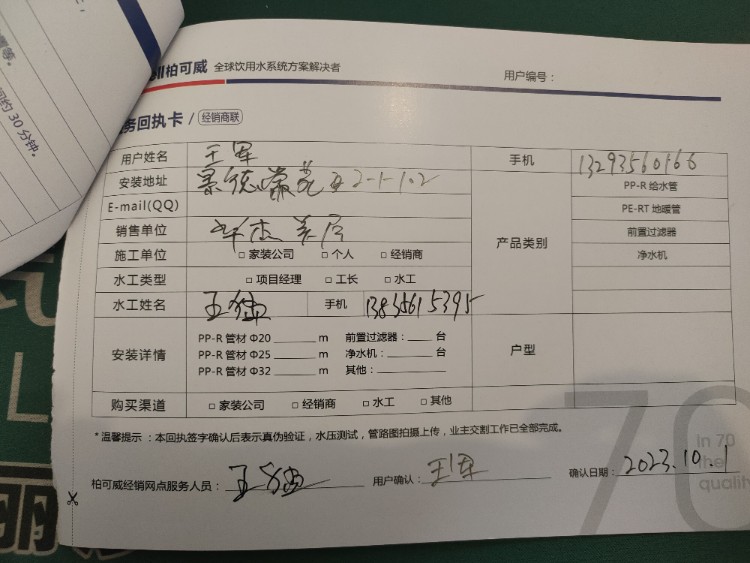 等。
约 30 分钟。
ll柏可威 全球饮用水系统方案解决者
用户编号：
务回执卡 / 经销商联
用户姓名 王军 手机 13293560166
安装地址 2-1-1.2 PP-R 给水管
E-mail(QQ) PE-RT 地暖管
销售单位 产品类别 前置过滤器
施工单位 □ 家装公司 □ 个人 □ 经销商 净水机
水工类型 □ 项目经理 □ 工长 □ 水工
水工姓名 手机
PP-R 管材 Φ20 m 前置过滤器： 台
安装详情 PP-R 管材 Φ25 m 净水机： 台 户型
PP-R 管材 Φ32 m 其他：
购买渠道 □ 家装公司 □ 经销商 □ 水工 □ 其他
*温馨提示：本回执签字确认后表示真伪验证，水压测试，管路图拍摄上传，业主交割工作已全部完成。
70
In 70
the
qualit
柏可威经销网点服务人员： 用户确认： 王军 确认日期： 2023.10.1
丽